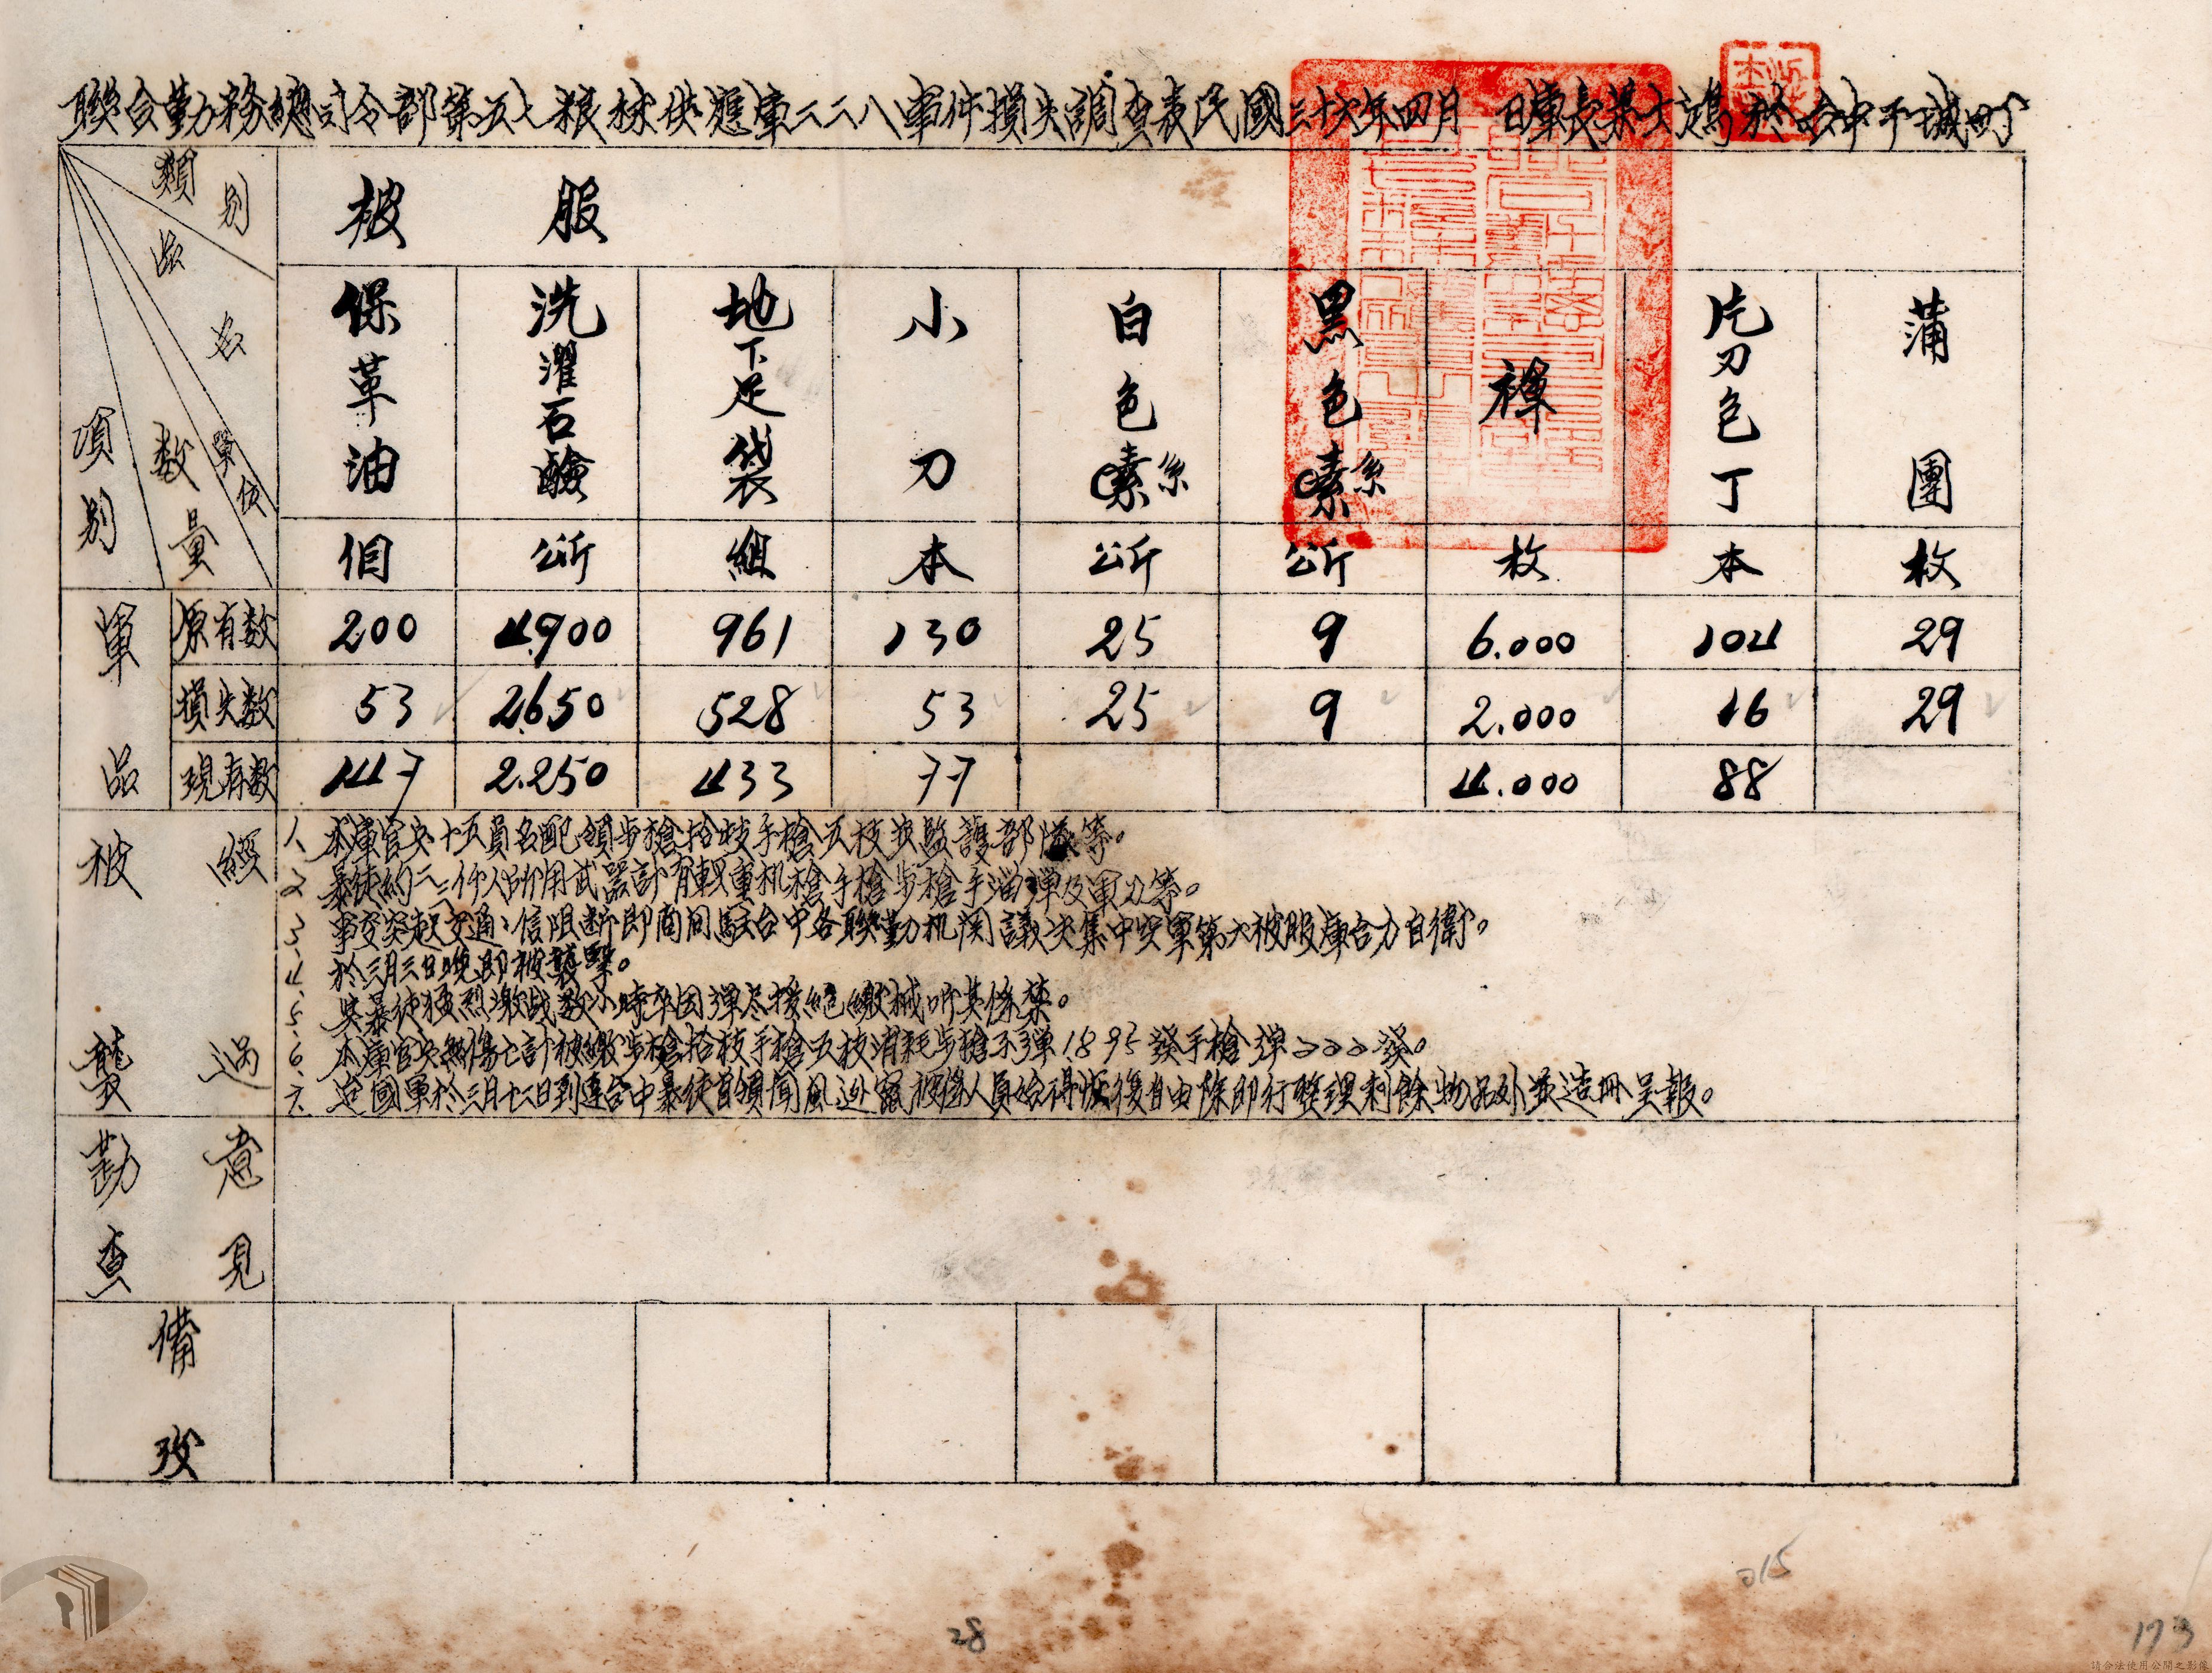 聯合勤務總司令部第五七粮秣供應庫二二八事件損失調查表民國三十六年四月 日庫長 士鴻於台中干城町
類別
品名
單位
數量
項別
被服
保革油 洗濯石鹼 地下足袋 小刀 白色素 黑色素 褌 片刃包丁 蒲團
個 公斤 組 本 公斤 公斤 枚 本 枚
軍品
原有数 200 4.900 961 130 25 9 6.000 104 29
損失数 53 2.650 528 53 25 9 2.000 16 29
現有数 147 2.250 433 77 4.000 88
被襲經過
1. 本庫官兵十五員名配領步槍拾枝手槍五枝無監護部隊等。
2. 暴徒約二三仟人所用武器計有輕重机槍手槍步槍手溜彈及軍刀等。
3. 事变突起交通通信阻断即商同駐台中各聯勤机関議决集中空軍第六被服庫合力自衛。
4. 於三月三日晚即被襲擊。
5. 與暴徒猛烈激战数小時卒因彈尽援絕繳械听其係禁。
6. 本庫官兵無傷亡計被繳步槍拾枝手槍五枝消耗步槍子彈1.895發手槍彈200發。
7. 迨國軍於三月十三日到達台中暴徒首領聞風逃竄被俘人員始得恢復自由除即行整理剩餘物品外並造冊呈報。
勘查意見
備攷
015
28
173
請合法使用公開之影像